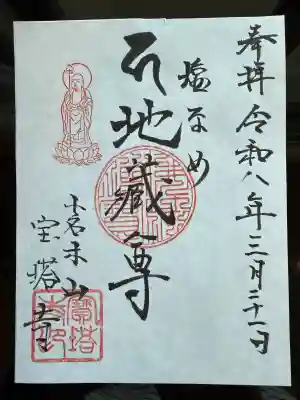 奉拝 令和八年三月二十一日
塩なめ
地蔵尊
小名木山
宝塔寺
寶塔